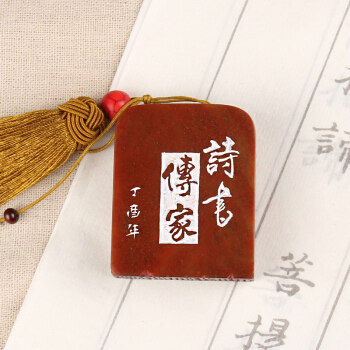 詩書
傳家
丁酉年
諦
菩
提